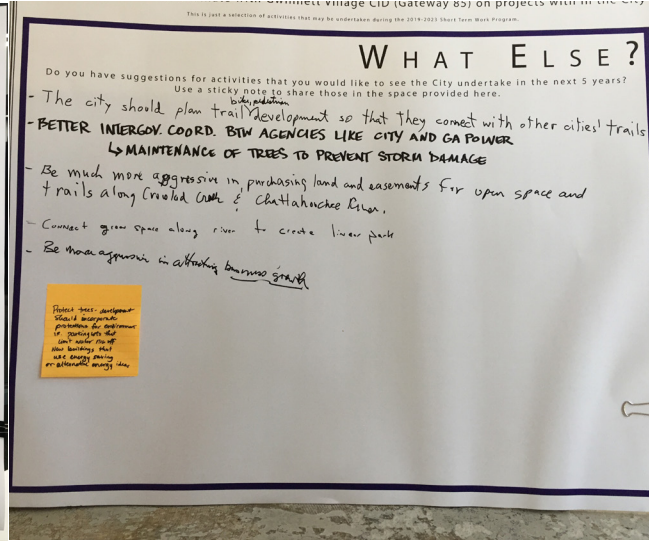 Village CID (Gateway 85) on projects with in the City
This is just a selection of activities that may be undertaken during the 2019-2023 Short Term Work Program.
WHAT ELSE?
Do you have suggestions for activities that you would like to see the City undertake in the next 5 years?
Use a sticky note to share those in the space provided here.
bike, pedestrian
- The city should plan trail development so that they connect with other cities' trails
- BETTER INTERGOV. COORD. BTW AGENCIES LIKE CITY AND GA POWER
↳ MAINTENANCE OF TREES TO PREVENT STORM DAMAGE
- Be much more aggressive in purchasing land and easements for open space and
trails along Crooked Creek & Chattahoochee River.
- Connect green space along river to create linear park
- Be more aggressive in attracting business growth
Protect trees - development
should incorporate
protections for environment
i.e. parking lots that
limit water run off
New buildings that
use energy saving
or alternative energy ideas